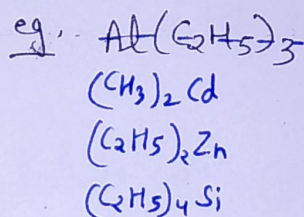 eg. Al(C2H5)3
(CH3)2Cd
(C2H5)2Zn
(C2H5)4Si